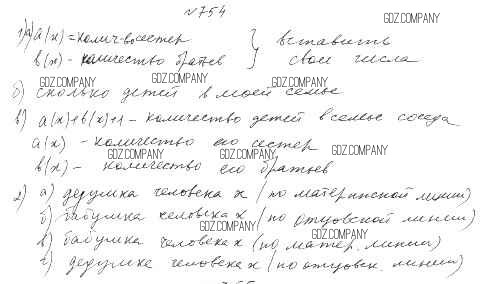 №754
GDZ.COMPANY
1) а) a(x) = колич-во сестер } вставить
b(x) - количество братьев } свои числа
GDZ.COMPANY GDZ.COMPANY GDZ.COMPANY
б) сколько детей в моей семье
в) a(x)+b(x)+1 - количество детей в семье соседа
a(x) - количество его сестер
GDZ.COMPANY GDZ.COMPANY GDZ.COMPANY
b(x) - количество его братьев
2) а) дедушка человека x (по материнской линии)
б) бабушка человека x (по отцовской линии)
GDZ.COMPANY GDZ.COMPANY
в) бабушка человека x (по матер. линии)
г) дедушка человека x (по отцовск. линии)